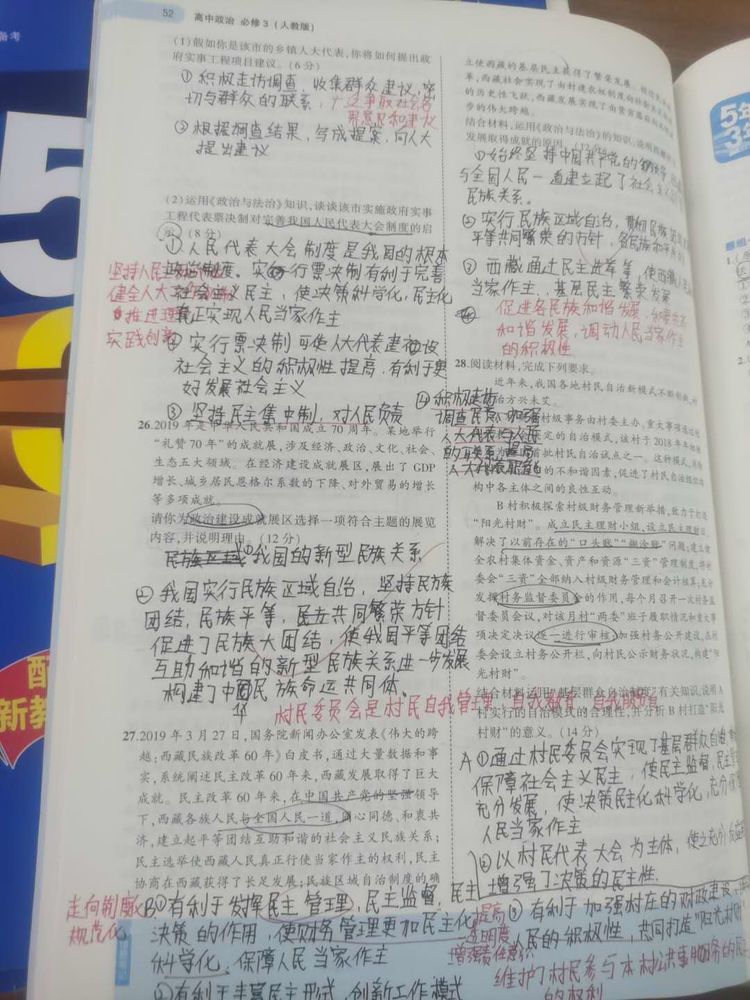 52 高中政治 必修3（人教版）
(1)假如你是该市的乡镇人大代表,你将如何提出政
府实事工程项目建议。(6分)
①积极走访调查，收集群众建议，密
切与群众的联系，广泛争取社会各
界意见和建议
②根据调查结果，写成提案，向人大
提出建议
(2)运用《政治与法治》知识,谈谈该市实施政府实事
工程代表票决制对完善我国人民代表大会制度的启
示。(8分)
①人民代表大会制度是我国的根本
政治制度。实行票决制有利于完善
社会主义民主，使决策科学化，民主化
真正实现人民当家作主
坚持人民
健全人大
推进理
实践创新
②实行票决制可使人大代表建设
社会主义的积极性提高，有利于更
好发展社会主义
③坚持民主集中制，对人民负责
④积极走访
调查民意，加强
人大代表与人民
的联系，提高
人大代表履职
26.2019年是中华人民共和国成立70周年。某地举行
“礼赞70年”的成就展,涉及经济、政治、文化、社会、
生态五大领域。在经济建设成就展区,展出了GDP
增长、城乡居民恩格尔系数的下降、对外贸易的增长
等多项成就。
请你为政治建设成就展区选择一项符合主题的展览
内容,并说明理由。(12分)
民族区域①我国的新型民族关系
②我国实行民族区域自治，坚持民族
团结，民族平等，民族共同繁荣方针
促进了民族大团结，使我国平等团结
互助和谐的新型民族关系进一步发展
构建了中华民族命运共同体。
村民委员会是村民自我管理 自我教育 自我服务
27.2019年3月27日,国务院新闻办公室发表《伟大的跨
越:西藏民主改革60年》白皮书,通过大量数据和事
实,系统阐述民主改革60年来,西藏发展取得了巨大
成就。民主改革60年来,在中国共产党的坚强领导
下,西藏各族人民与全国人民一道,同心同德、和衷共
济,建立起平等团结互助和谐的社会主义民族关系;
民主选举使西藏人民真正行使当家作主的权利,民主
协商在西藏获得了长足发展;民族区域自治制度的确
立使西藏的基层民主获得了繁荣发展。
革,西藏社会实现了由封建农奴制度
的历史性飞跃,西藏发展实现了由贫穷落后
步的伟大跨越。
结合材料,运用《政治与法治》的知识,说明西藏
发展取得成就的原因。(12分)
①始终坚持中国共产党的领导
与全国人民一道建立起了社会主义
民族关系。
②实行民族区域自治，贯彻民族
平等共同繁荣的方针，各民族和
③西藏通过民主选举等，使西藏人民
当家作主，基层民主繁荣发展
促进各民族和谐发展，
和谐发展，调动人民当家作主
的积极性
28.阅读材料,完成下列要求。
近年来,我国各地村民自治新模式不断创新,村
治方兴未艾。
村级事务由村委主办、重大事项通过
定的自治模式,该村于2018年年初
首批村民自治试点之一。这种模式,
的不和谐因素,促进了村民自治组织
构中各主体之间的良性互动。
B村积极探索村级财务管理新举措,致力于打造
“阳光村财”。成立民主理财小组,设立民主理财日,
解决了以前存在的“口头账”“糊涂账”问题;建立健
全农村集体资金、资产和资源“三资”管理制度,将村
委会“三资”全部纳入村级财务管理和会计核算;充分
发挥村务监督委员会的作用,每个月召开一次村务监
督委员会议,对该月村“两委”班子履职情况和重大事
项决定决议逐一进行审核;加强村务公开建设,在村
委会设立村务公开栏,向村民公示财务状况,构建“阳
光村财”。
结合材料,运用“基层群众自治制度”有关知识,说明A
村实行的自治模式的合理性,并分析B村打造“阳光
村财”的意义。(14分)
A①通过村民委员会实现了基层群众自治，
保障社会主义民主，使民主监督，民主
充分发展，使决策民主化科学化，充分
人民当家作主
②以村民代表大会为主体，使之充分反应
民主，增强了决策的民主性
走向制度化
规范化
B①有利于发挥民主管理，民主监督，
决策的作用，使财务管理更加民主化
科学化，保障人民当家作主
提高
透明度
增强责任意识
②有利于丰富民主形式，创新工作模式
③有利于加强村庄的财政建设，
人民的积极性，共同打造“阳光村财”
维护了村民参与本村公共事务的
的权利